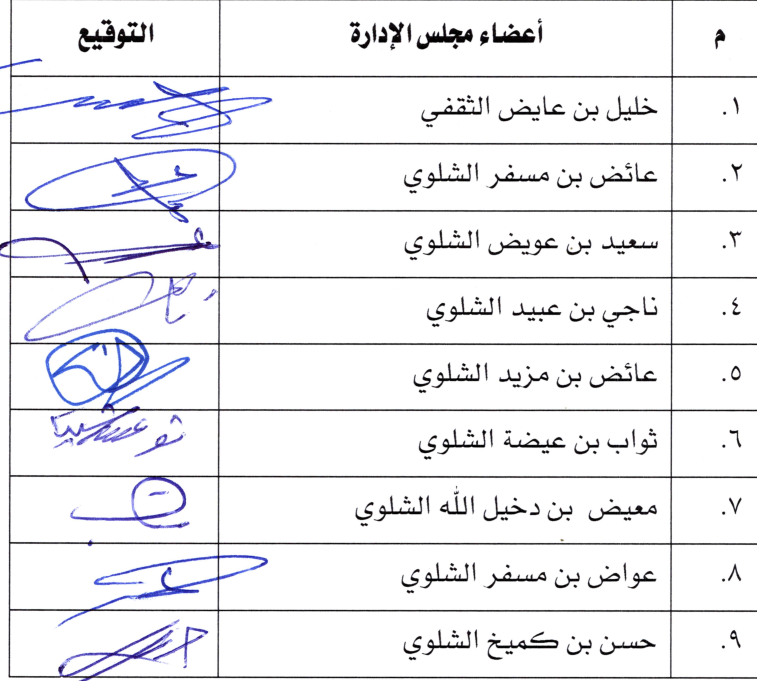 م أعضاء مجلس الإدارة التوقيع
١. خليل بن عايض الثقفي
٢. عائض بن مسفر الشلوي
٣. سعيد بن عويض الشلوي
٤. ناجي بن عبيد الشلوي
٥. عائض بن مزيد الشلوي
٦. ثواب بن عيضة الشلوي
٧. معيض بن دخيل الله الشلوي
٨. عواض بن مسفر الشلوي
٩. حسن بن كميخ الشلوي